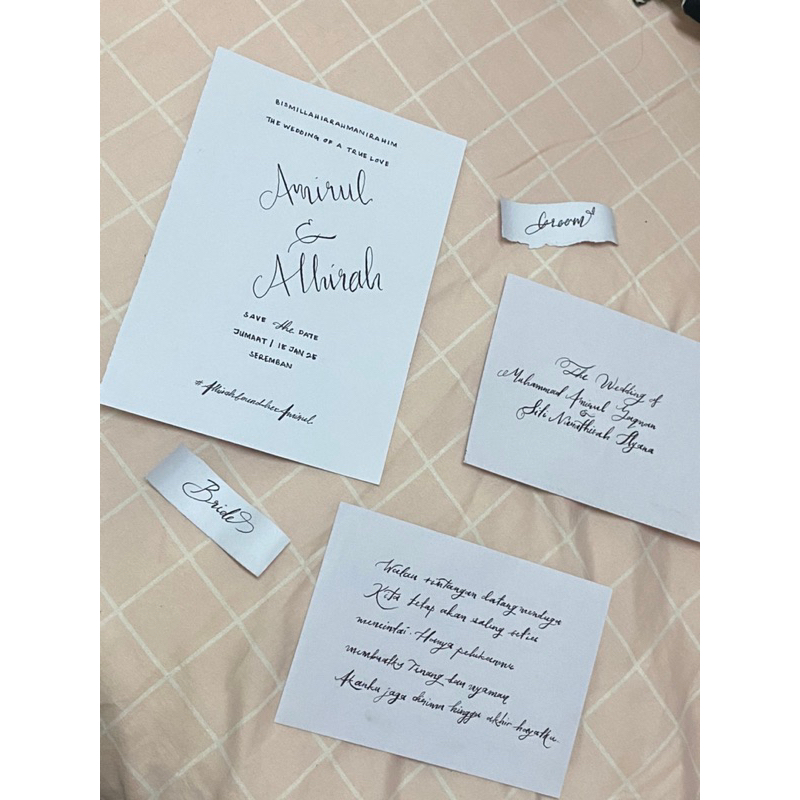 BISMILLAHIRRAHMANIRAHIM
THE WEDDING OF A TRUE LOVE
Amirul
&
Athirah
SAVE the DATE
JUMAAT / 15 JAN 25
SEREMBAN
#AthirahfoundherAmirul
Groom
The Wedding of
Muhammad Amirul Luqman
&
Siti Nurathirah Ayana
Bride
Walau rintangan datang menduga
Kita tetap akan saling setia
mencintai. Hanya pelukanmu
membuatku Tenang dan nyaman
Akanku jaga dirimu hingga akhir hayatku.